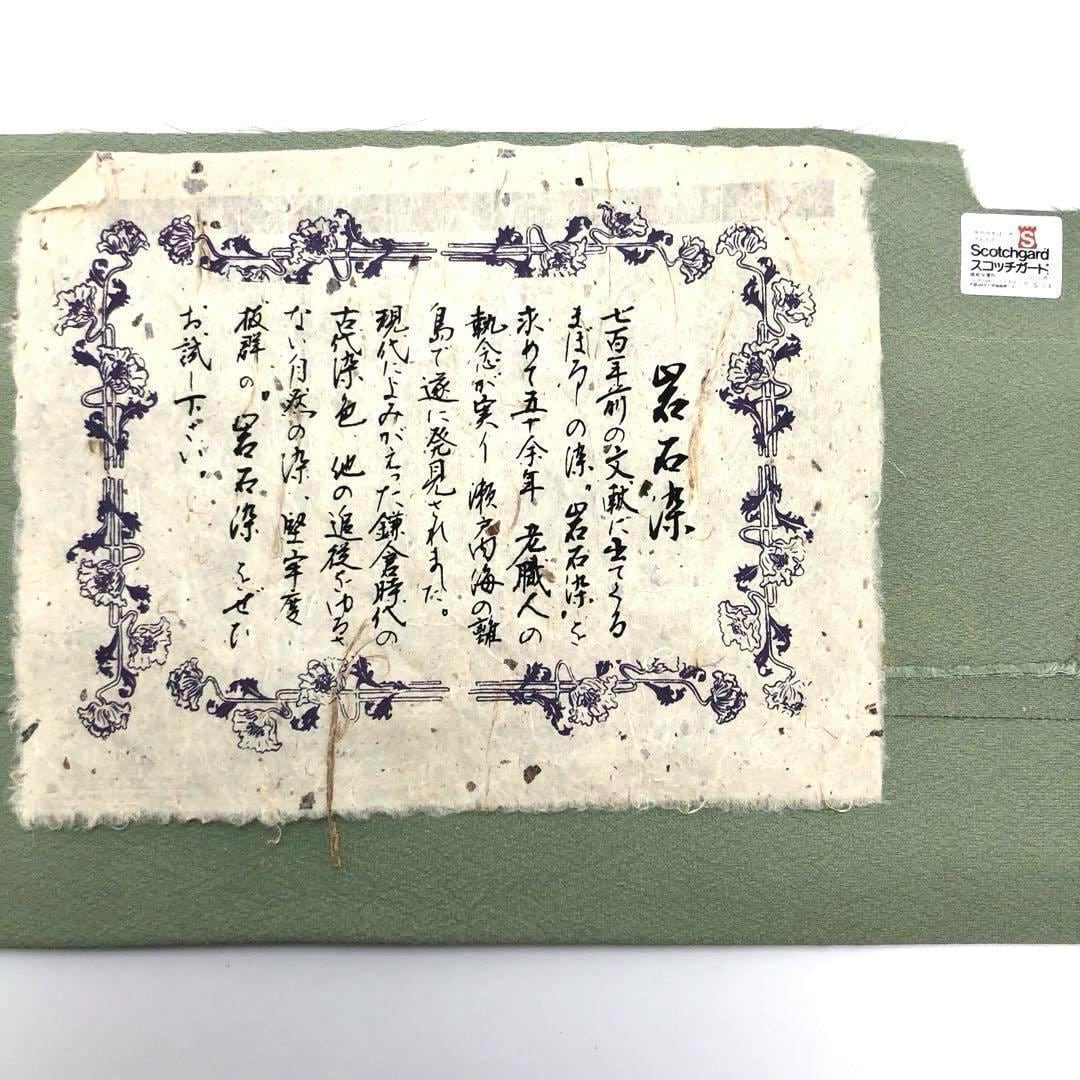 岩石染
七百年前の文献に出てくる
まぼろしの染。岩石染を
求めて五十余年 老職人の
執念が実り 瀬戸内海の離
島で遂に発見されました。
現代によみがえった鎌倉時代の
古代染色 他の追従をゆるさ
ない自然の染、堅牢度
抜群の。岩石染をぜひ
お試し下さい。
S
Scotchgard
スコッチガード